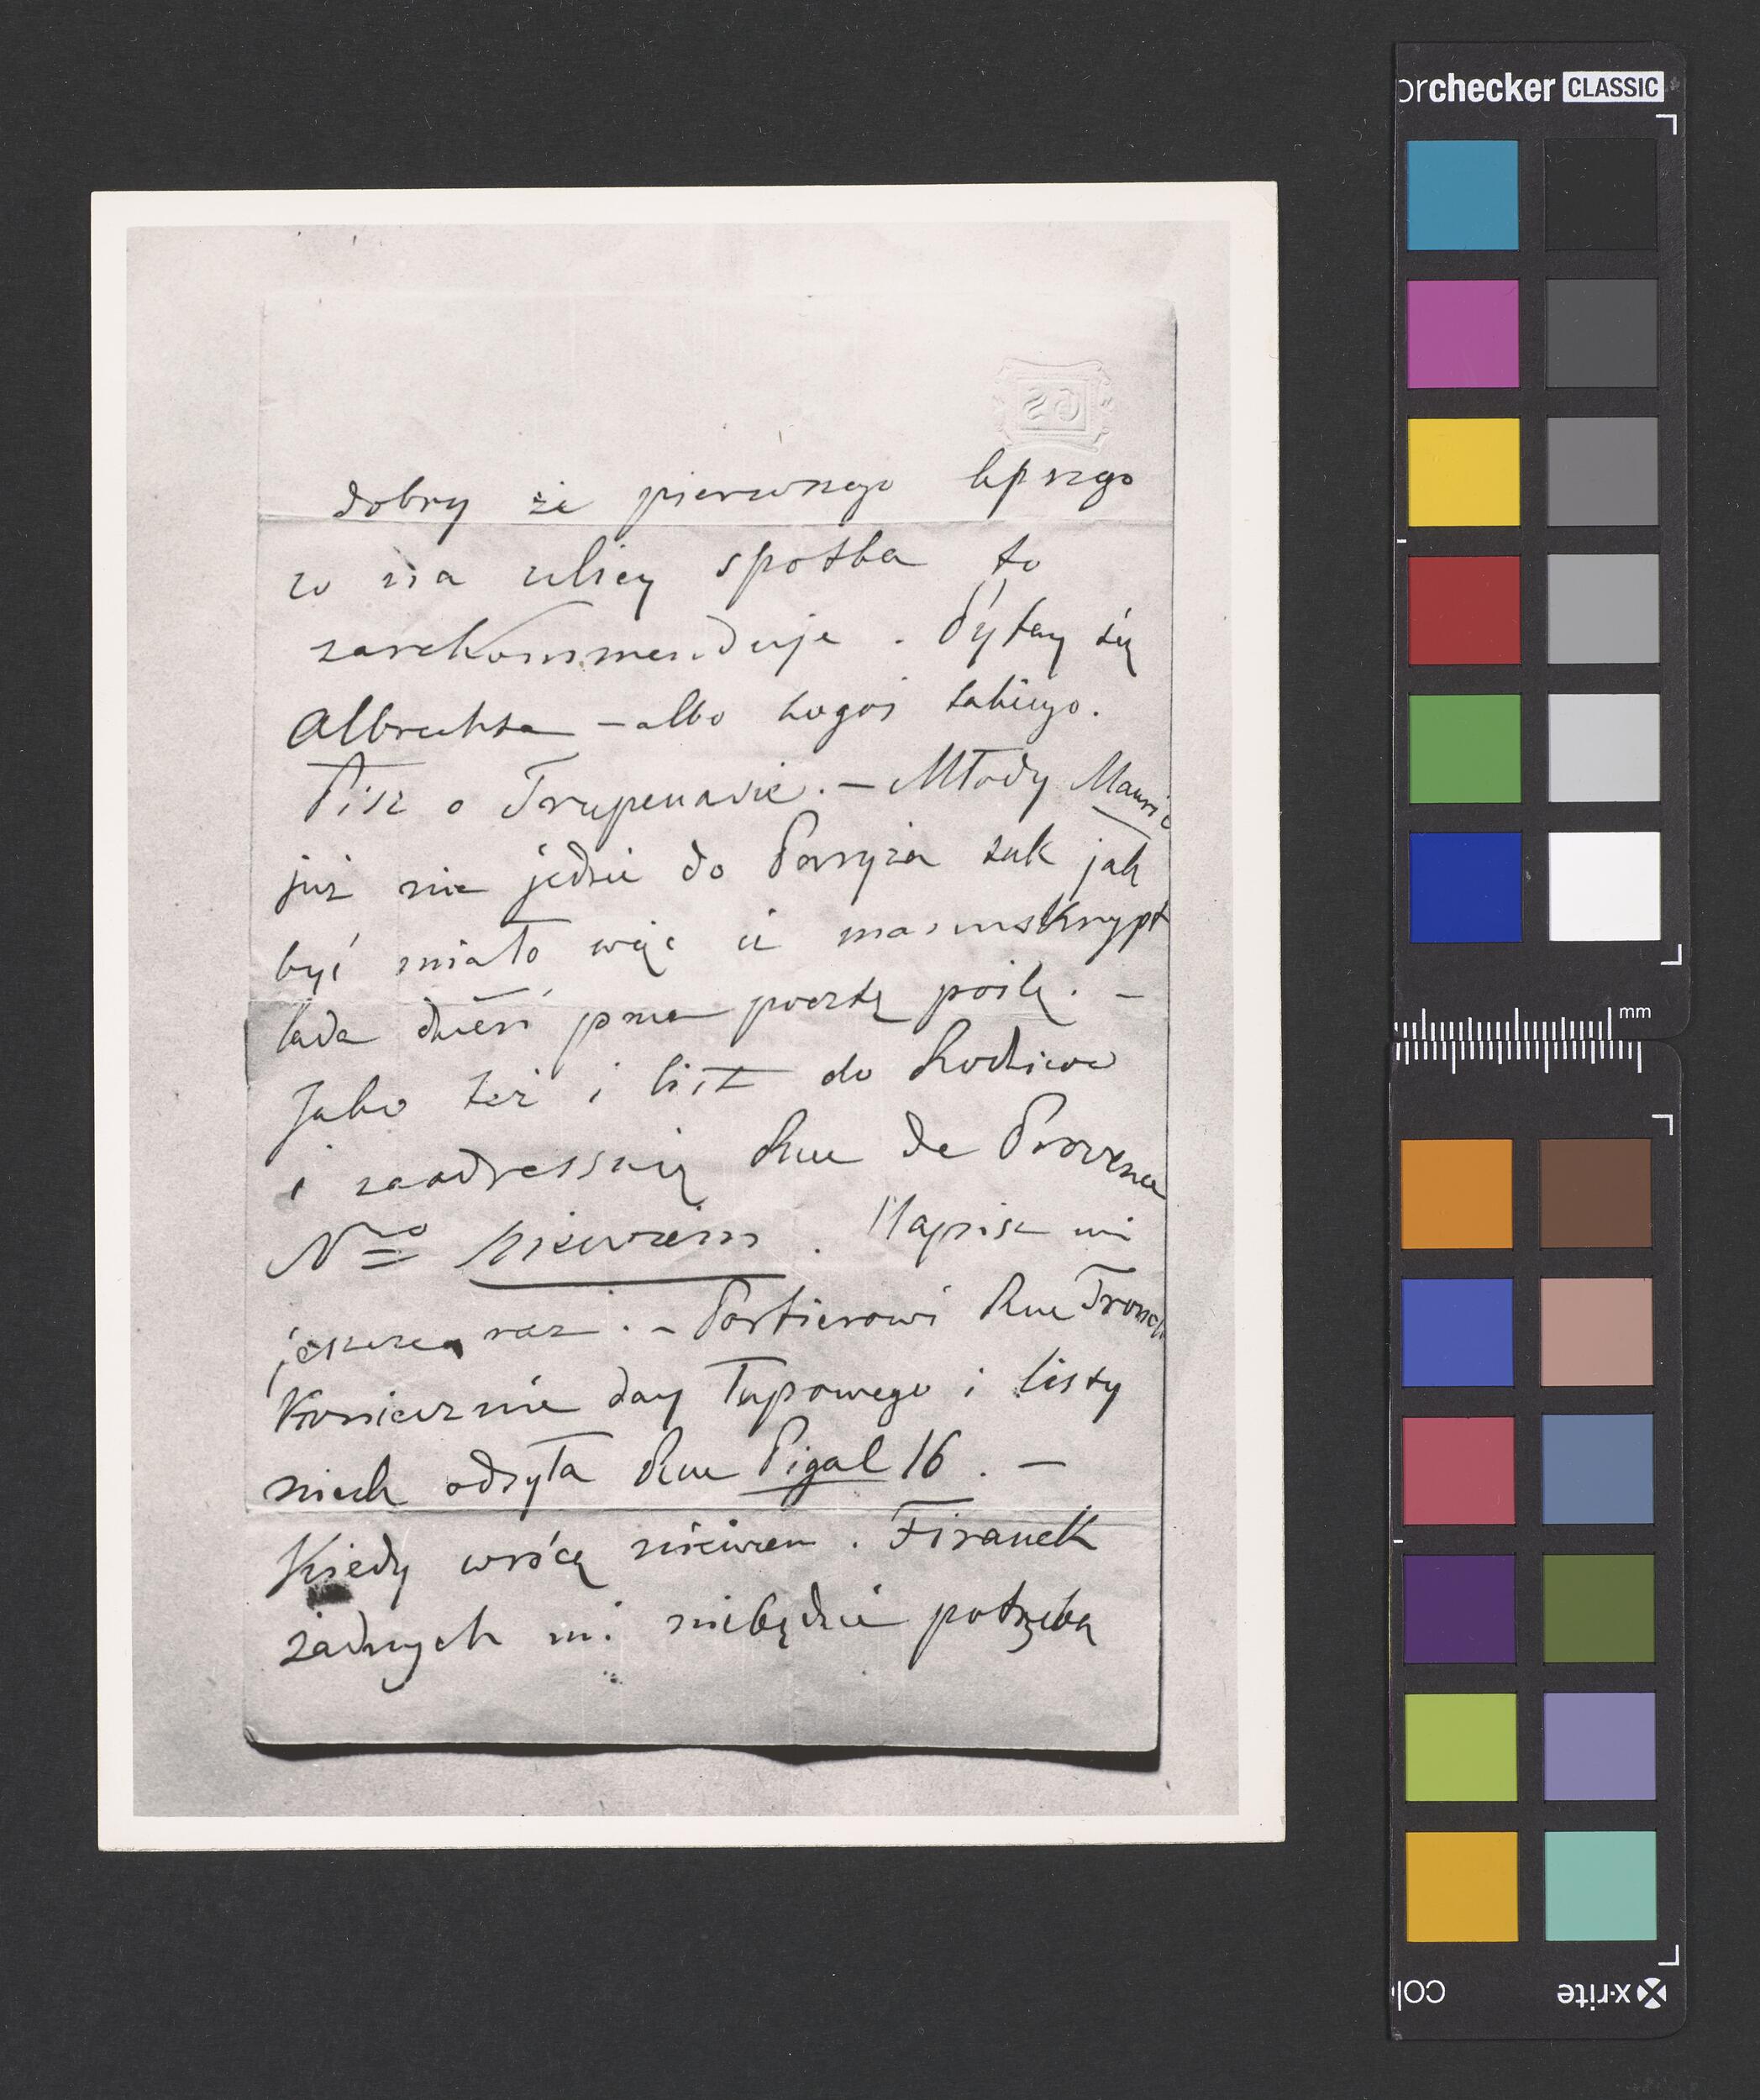 orchecker CLASSIC
GS
dobry że pierwszego lepszego
co na ulicy spotka to
zarekommenduje. Pytay się
Albrechta – albo kogoś takiego.
Pisz o Trupenasie. – Młody Mauric
już nie jedzie do Paryża tak jak
być miało więc ci manuskrypt
lada dzień przez pocztę poślę. –
Jako też i list do Rodziców
i zaadressuię Rue de Provence
No niewiem. Napisz mi
jeszcze raz. – Portierowi Rue Tronch
Koniecznie day Łapowego i listy
niech odsyła Rue Pigal 16. –
Kiedy wrócę niewiem. Firanek
żadnych mi niebędzie potrzeba
mm
colo
x-rite